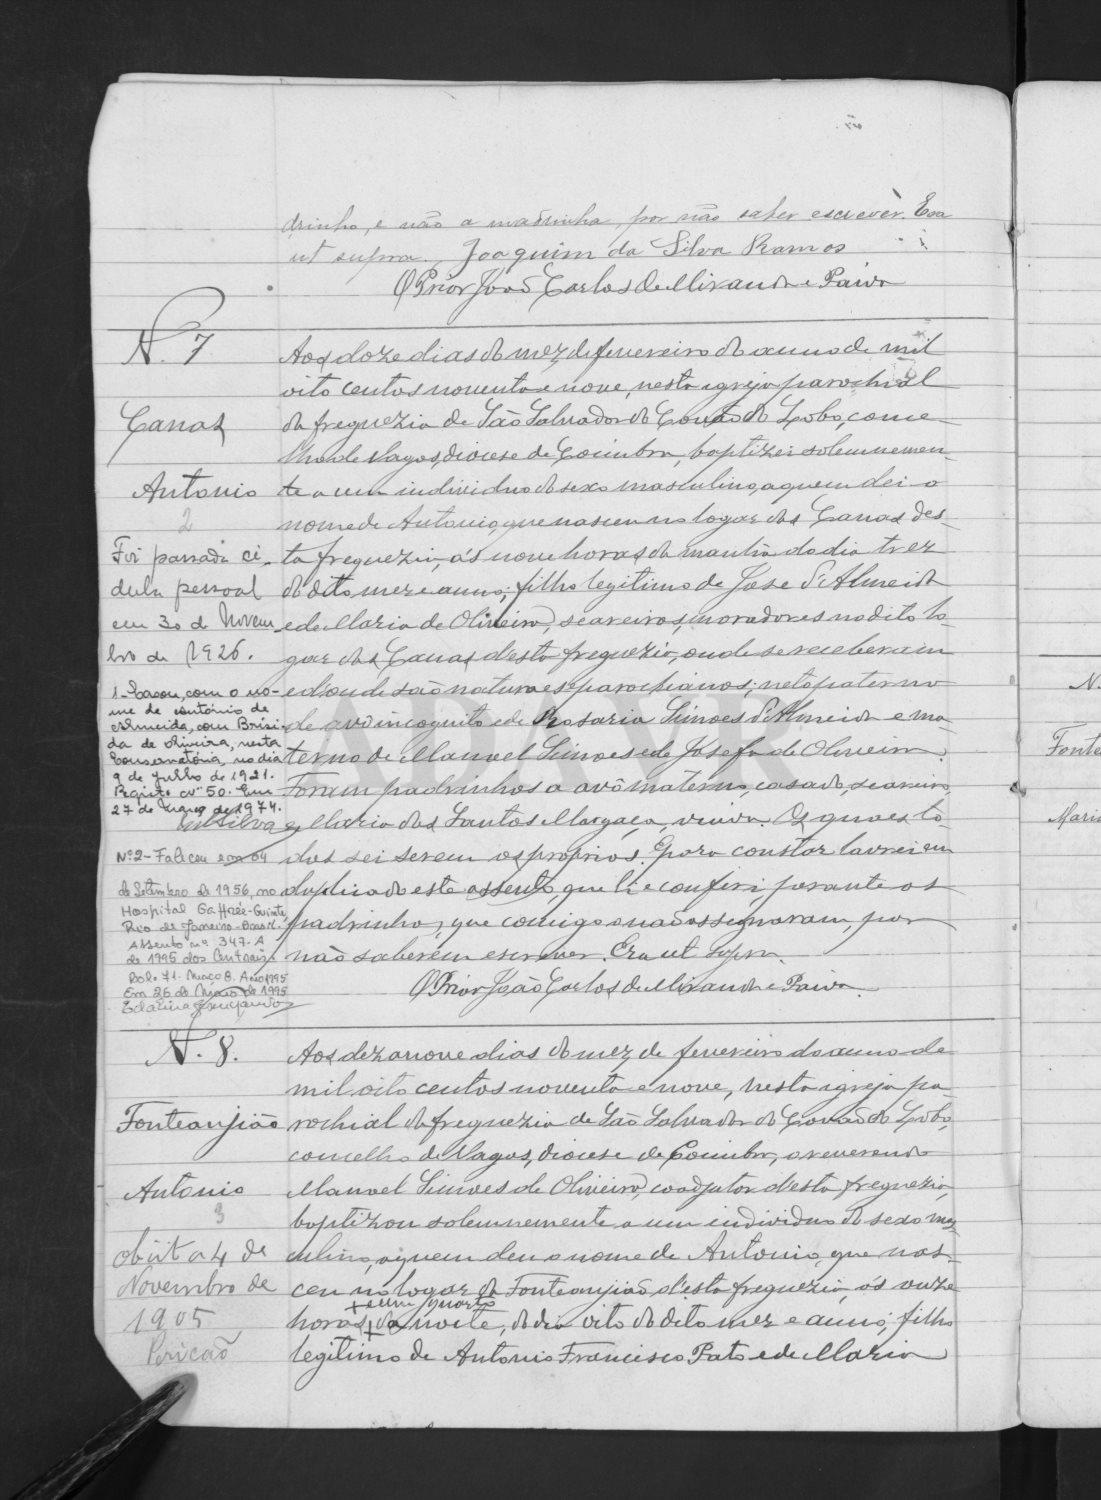 drinho, e não a madrinha, por não saber escrever. Era
ut supra. Joaquim da Silva Ramos
O Prior João Carlos de Miranda e Paiva
N. 7
Canas
Antonio
2
Foi passada cé-
dula pessoal
em 30 de Novem-
bro de 1926.
1-Casou, com o no-
me de António de
Almeida, com Brísi-
da de Oliveira, nesta
Conservatória, no dia
9 de julho de 1921.
Registo nº 50. Em
27 de Março de 1974.
Nº2-Faleceu em 04
de Setembro de 1956, no
Hospital Gaffrée-Guinle,
Rio de Janeiro-Brasil.
Assento nº 347-A
de 1995 dos Centrais.
Bol. 71. Maço 8. Ano 1995
Em 26 de Março de 1995
Aos doze dias do mez de fevereiro do anno de mil
oito centos noventa e nove, nesta igreja parochial
da freguezia de São Salvador do Covão do Lobo, conce-
lho de Vagos, diocese de Coimbra, baptizei solemnemen-
te a um individuo do sexo masculino, a quem dei o
nome de Antonio, que nasceu no logar das Canas des-
ta freguezia, ás nove horas da manhã do dia trez
do dito mez e anno; filho legitimo de José d'Almeida
e de Maria de Oliveira, seareiros, moradores no dito lo-
gar das Canas d'esta freguezia, onde se receberam
e d'onde são naturaes e parochianos; neto paterno
de avô incognito e de Rosaria Simões d'Almeida e ma-
terno de Manuel Simões e de Josefa de Oliveira.
Foram padrinhos o avô materno, casado, seareiro,
e Maria dos Santos Margaça, viuva. Os quaes to-
dos sei serem os proprios. E para constar lavrei em
duplicado este assento, que li e conferi perante os
padrinhos, que comigo o não assignaram, por
não saberem escrever. Era ut supra.
O Prior João Carlos de Miranda e Paiva.
N. 8.
Fonteanjião
Antonio
3
obiit a 4 de
Novembro de
1905
Aos dezanove dias do mez de fevereiro do anno de
mil oito centos noventa e nove, nesta igreja pa
rochial da freguezia de São Salvador do Covão do Lobo,
concelho de Vagos, diocese de Coimbra, o reverendo
Manoel Simões de Oliveira, coadjutor d'esta freguezia,
baptizou solemnemente a um individuo do sexo mas
culino, a quem deu o nome de Antonio, que nas-
ceu no logar da Fonteanjião d'esta freguezia, ás onze
+ e um quarto
horas + da noite, do dia oito do dito mez e anno; filho
legitimo de Antonio Francisco Pato e de Maria
N.
Fonte
Maria
ADAVR